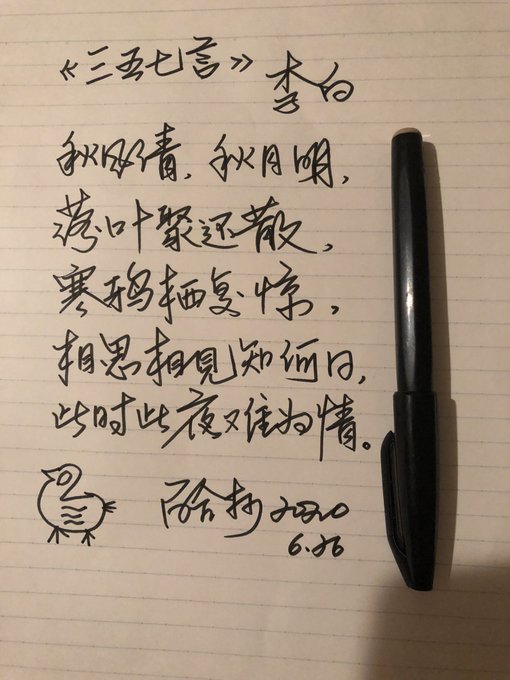 《三五七言》 李白
秋风清，秋月明，
落叶聚还散，
寒鸦栖复惊，
相思相見知何日，
此时此夜难为情。
抄 2020
6.26